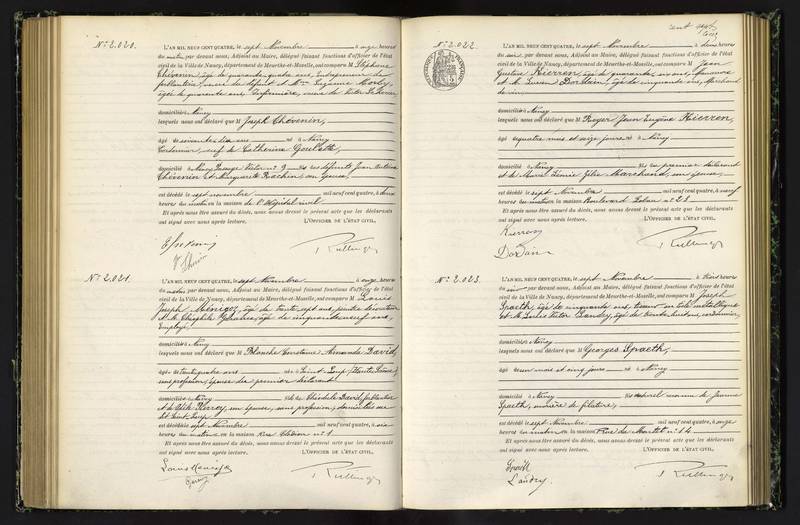 N° 2.020.
L'AN MIL NEUF CENT QUATRE, le sept Novembre à onze heures
du matin par devant nous, Adjoint au Maire, délégué faisant fonctions d'officier de l'état
civil de la Ville de Nancy, département de Meurthe-et-Moselle, ont comparu M Stéphane
Thévenin, âgé de quarante quatre ans, Entrepreneur de
ferblanterie, neveu du défunt et Mme Suzanne
âgée de quarante ans, veuve de Victor
domiciliés à Nancy
lesquels nous ont déclaré que M Joseph Thévenin,
âgé de soixante dix ans né à Nancy
Cordonnier, veuf de Catherine
domicilié à Nancy Passage Victor n° 9 fils des défunts Jean
Thévenin et Marguerite Rachin, son épouse
est décédé le sept novembre mil neuf cent quatre, à deux
heures du matin en la maison de l'Hôpital civil
Et après nous être assuré du décès, nous avons dressé le présent acte que les déclarants
ont signé avec nous après lecture. L'OFFICIER DE L'ÉTAT CIVIL,
N° 2.021.
L'AN MIL NEUF CENT QUATRE, le sept Novembre à onze heures
du matin par devant nous, Adjoint au Maire, délégué faisant fonctions d'officier de l'état
civil de la Ville de Nancy, département de Meurthe-et-Moselle, ont comparu M Louis
Joseph âgé de trente sept ans, peintre décorateur
et M. Théophile âgé de cinquante neuf ans,
Employé,
domiciliés à Nancy
lesquels nous ont déclaré que M Blanche Constance Amanda David,
âgée de trente quatre ans née à Saint-Loup (Haute Saône)
sans profession, épouse du premier déclarant
domiciliée à Nancy fille de Théodule David, ferblantier
et de son épouse, sans profession, domiciliés au
dit Saint Loup
est décédée le sept Novembre mil neuf cent quatre, à six
heures du matin en la maison Rue n° 1
Et après nous être assuré du décès, nous avons dressé le présent acte que les déclarants
ont signé avec nous après lecture. L'OFFICIER DE L'ÉTAT CIVIL,
N° 2.022.
L'AN MIL NEUF CENT QUATRE, le sept Novembre à deux heures
du soir par devant nous, Adjoint au Maire, délégué faisant fonctions d'officier de l'état
civil de la Ville de Nancy, département de Meurthe-et-Moselle, ont comparu M Jean
Gustave Hierren, âgé de quarante six ans,
et M. Lucien Dordain, âgé de cinquante ans, Marchand
de vin,
domiciliés à Nancy
lesquels nous ont déclaré que M Roger Jean Eugène Hierren,
âgé quatre mois et seize jours né à Nancy
domicilié à Nancy fils du premier déclarant
et de Marie Léonie Marchand, son épouse,
est décédé le sept Novembre mil neuf cent quatre, à neuf
heures du matin en la maison Boulevard Lobau n° 21
Et après nous être assuré du décès, nous avons dressé le présent acte que les déclarants
ont signé avec nous après lecture. L'OFFICIER DE L'ÉTAT CIVIL,
Dordain
N° 2.023.
L'AN MIL NEUF CENT QUATRE, le sept Novembre à trois heures
du soir par devant nous, Adjoint au Maire, délégué faisant fonctions d'officier de l'état
civil de la Ville de Nancy, département de Meurthe-et-Moselle, ont comparu M Joseph
Spaeth, âgé de cinquante ans, tisseur en toile métallique
et M. Victor Landry, âgé de trente huit ans, cordonnier,
domiciliés à Nancy
lesquels nous ont déclaré que M Georges Spaeth,
âgé de un mois et cinq jours né à Nancy
domicilié à Nancy fils naturel reconnu de Jeanne
Spaeth, ouvrière de filature,
est décédé le sept Novembre mil neuf cent quatre, à onze
heures du matin en la maison Rue de Martet n° 14
Et après nous être assuré du décès, nous avons dressé le présent acte que les déclarants
ont signé avec nous après lecture. L'OFFICIER DE L'ÉTAT CIVIL,
Spaeth
Landry